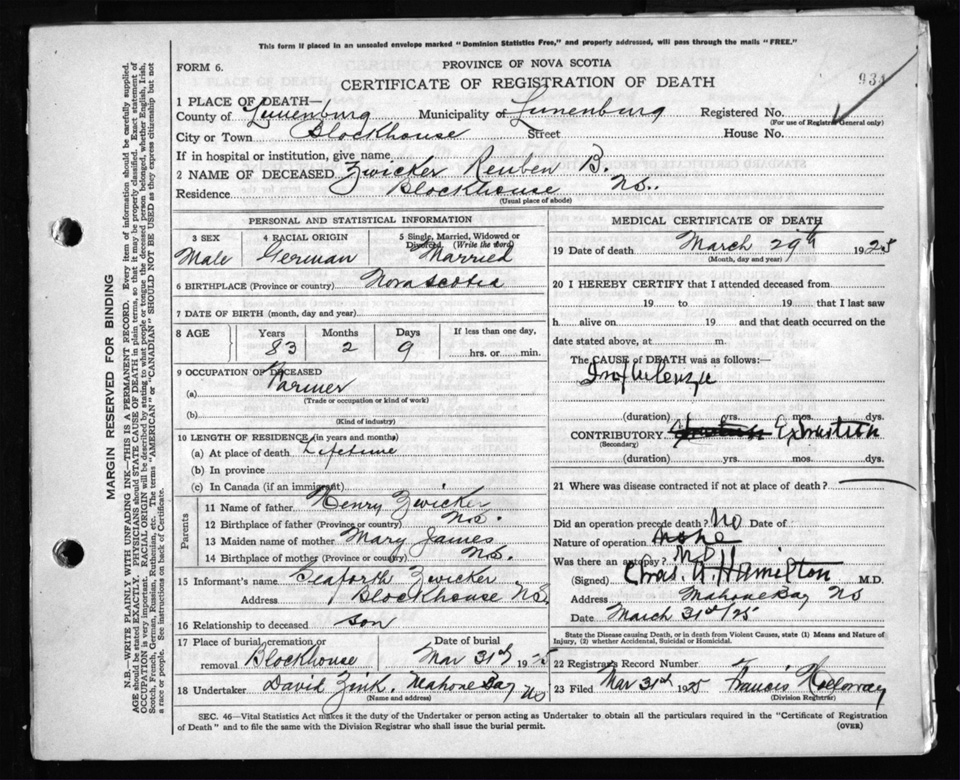 This form if placed in an unsealed envelope marked "Dominion Statistics Free," and properly addressed, will pass through the mails "FREE."
FORM 6.
PROVINCE OF NOVA SCOTIA
CERTIFICATE OF REGISTRATION OF DEATH
934
1 PLACE OF DEATH—
County of Lunenburg Municipality of Lunenburg Registered No.
(For use of Registrar General only)
City or Town Blockhouse Street House No.
If in hospital or institution, give name
2 NAME OF DECEASED Zwicker Reuben B.
Residence Blockhouse NS.
(Usual place of abode)
PERSONAL AND STATISTICAL INFORMATION
3 SEX 4 RACIAL ORIGIN 5 Single, Married, Widowed or Divorced. (Write the word)
Male German Married
6 BIRTHPLACE (Province or country) Nova Scotia
7 DATE OF BIRTH (month, day and year)
8 AGE Years Months Days If less than one day,
83 2 9 hrs. or min.
9 OCCUPATION OF DECEASED
(a) Farmer
(Trade or occupation or kind of work)
(b)
(Kind of industry)
10 LENGTH OF RESIDENCE (in years and months)
(a) At place of death Lifetime
(b) In province
(c) In Canada (if an immigrant)
Parents
11 Name of father Henry Zwicker
12 Birthplace of father (Province or country) NS.
13 Maiden name of mother Mary James
14 Birthplace of mother (Province or country) NS.
15 Informant's name Seaforth Zwicker
Address Blockhouse NS
16 Relationship to deceased son
17 Place of burial, cremation or removal Blockhouse Date of burial Mar 31st 1925
18 Undertaker David Zink. Mahone Bay NS
(Name and address)
MEDICAL CERTIFICATE OF DEATH
19 Date of death March 29th 1925
(Month, day and year)
20 I HEREBY CERTIFY that I attended deceased from
19 to 19 that I last saw
h alive on 19 and that death occurred on the
date stated above, at m.
The CAUSE of DEATH was as follows:
(duration) yrs. mos. dys.
CONTRIBUTORY Exhaustion
(Secondary)
(duration) yrs. mos. dys.
21 Where was disease contracted if not at place of death?
Did an operation precede death? No Date of
Nature of operation none
Was there an autopsy? No
(Signed) Chas. A. Hamilton M.D.
Address Mahone Bay NS
Date March 31st/25
State the Disease causing Death, or in death from Violent Causes, state (1) Means and Nature of
Injury, (2) whether Accidental, Suicidal or Homicidal.
22 Registrar's Record Number
23 Filed Mar 31st 1925 Francis Holloway
(Division Registrar)
SEC. 46—Vital Statistics Act makes it the duty of the Undertaker or person acting as Undertaker to obtain all the particulars required in the "Certificate of Registration
of Death" and to file the same with the Division Registrar who shall issue the burial permit. (OVER)
MARGIN RESERVED FOR BINDING
N.B.—WRITE PLAINLY WITH UNFADING INK—THIS IS A PERMANENT RECORD. Every item of information should be carefully supplied.
AGE should be stated EXACTLY. PHYSICIANS should STATE CAUSE OF DEATH in plain terms, so that it may be properly classified. Exact statement of
OCCUPATION is very important. RACIAL ORIGIN will be described by stating to what people or tongue the deceased person belonged, whether English, Irish,
Scotch, French, German, Russian, Ruthenian, etc. The terms "AMERICAN" or "CANADIAN" SHOULD NOT BE USED as they express citizenship but not
a race or people. See instructions on back of Certificate.